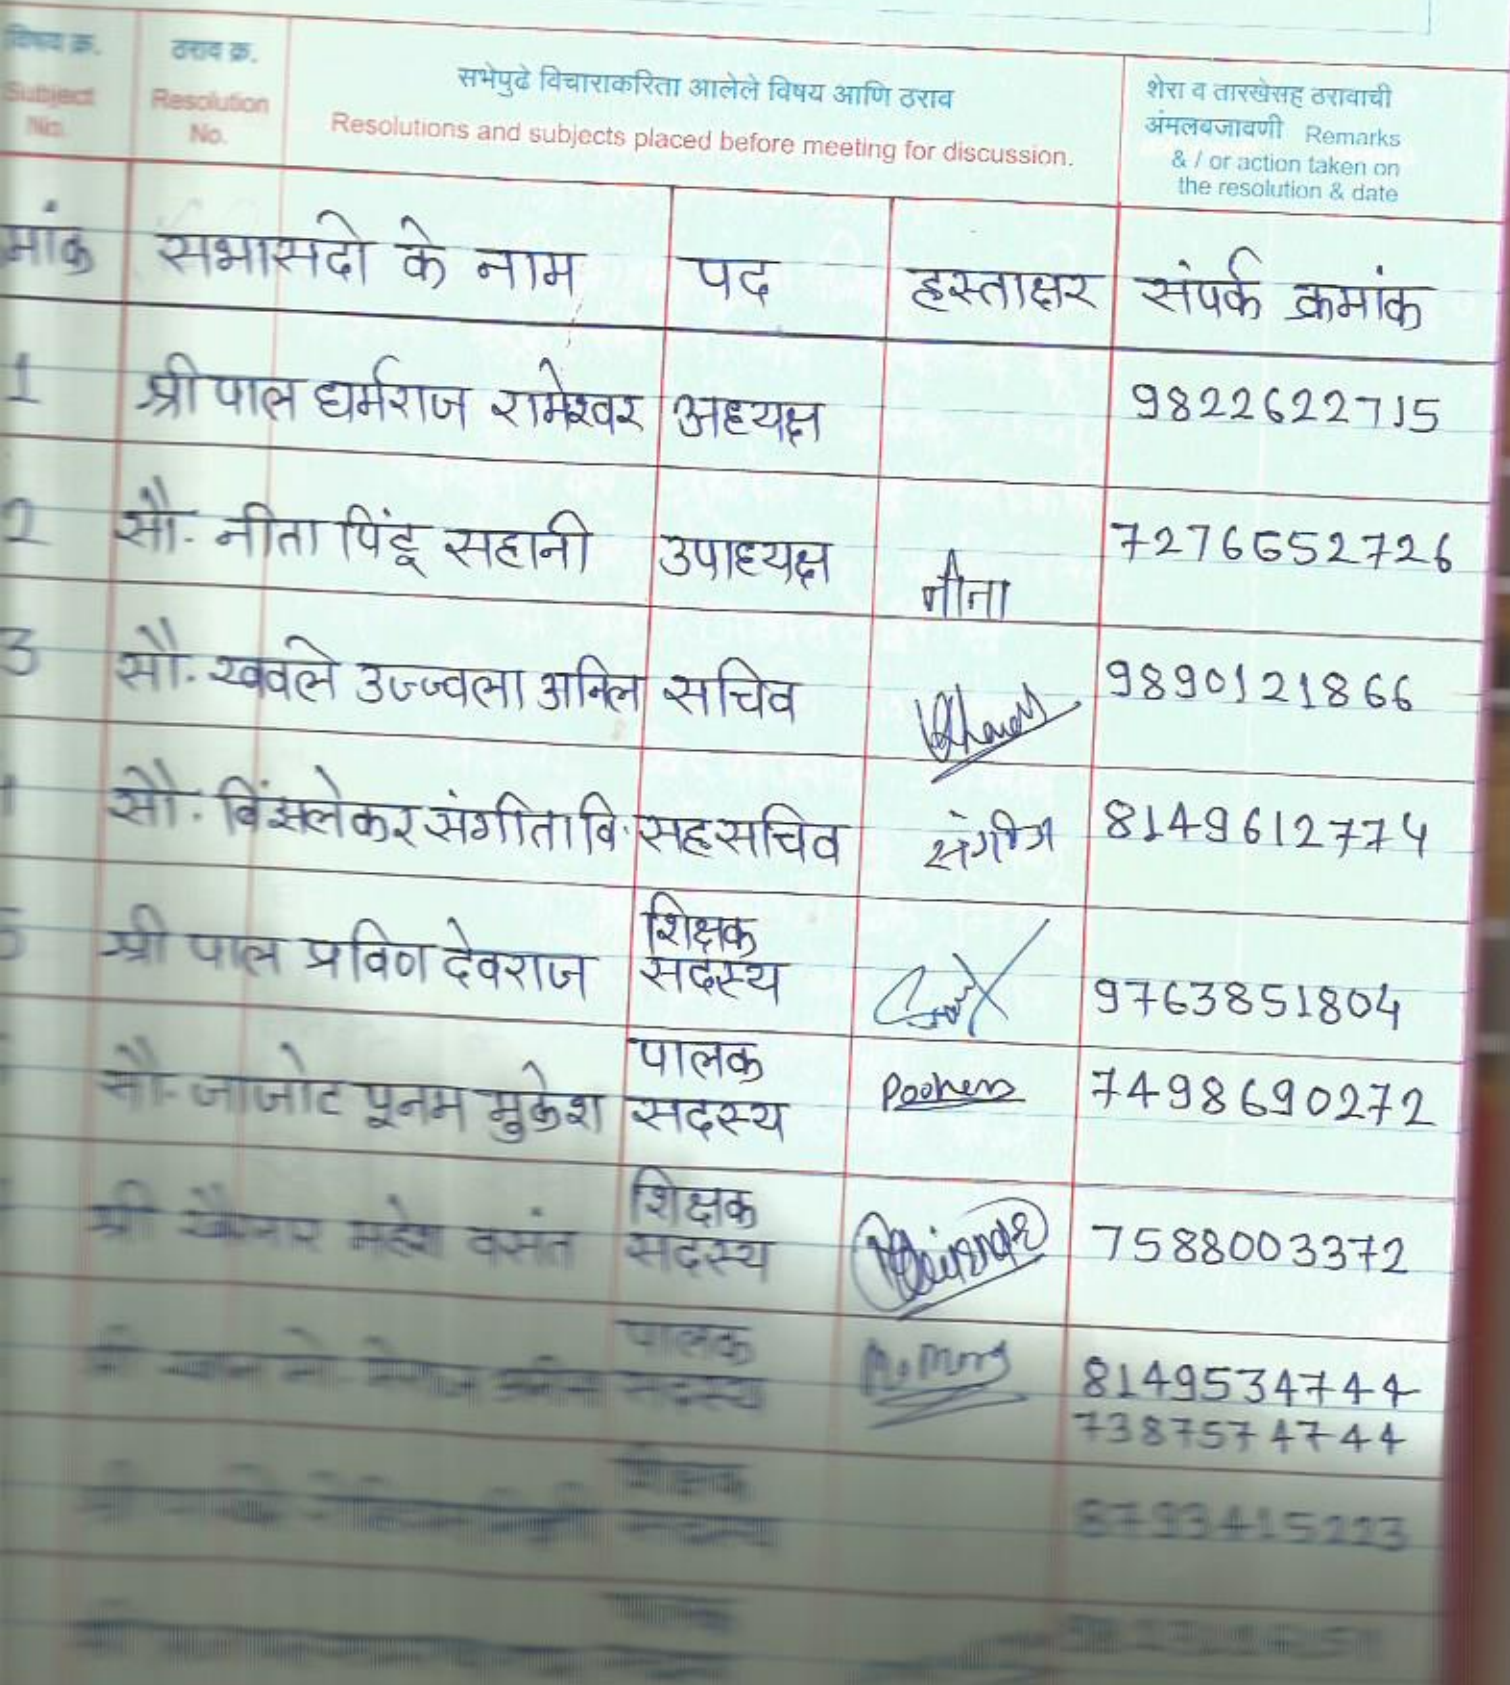 विषय क्र.
Subject No.
ठराव क्र.
Resolution No.
सभेपुढे विचाराकरिता आलेले विषय आणि ठराव
Resolutions and subjects placed before meeting for discussion.
शेरा व तारखेसह ठरावाची
अंमलबजावणी Remarks
& / or action taken on
the resolution & date
मांक सभासदो के नाम पद हस्ताक्षर संपर्क क्रमांक
1 श्री पाल धर्मराज रामेश्वर अध्यक्ष 9822622715
2 सौ. नीता पिंटू सहानी उपाध्यक्ष नीता 7276652726
3 सौ. खवले उज्ज्वला अनिल सचिव 9890121866
सौ. विंझलेकर संगीता वि. सहसचिव संगीता 8149612774
5 श्री पाल प्रविण देवराज शिक्षक सदस्य 9763851804
सौ. जाजोट पूनम मुकेश पालक सदस्य Poonam 7498690272
श्री खैरनार महेश वसंत शिक्षक सदस्य 7588003372
श्री खान मो. पालक सदस्य 8149534744
7387574744
शिक्षक सदस्य 8793415223
पालक